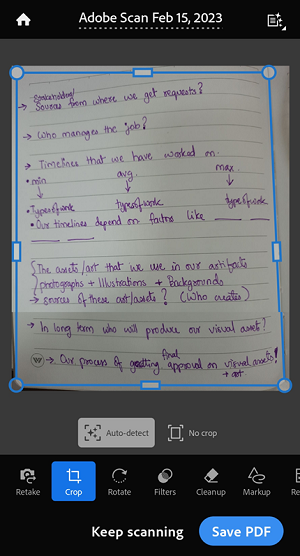 Adobe Scan Feb 15, 2023
Stakeholding/
→ Sources from where we get requests?
→ Who manages the job?
→ Timelines that we have worked on.
• min avg. max
• Types of work types of work type of work
• Our timelines depend on factors like ___ ___
___ ___
{The assets/art that we use in our artifacts
photographs + Illustrations + Backgrounds
→ sources of these art/assets? (Who creates)
→ In long term who will produce our visual asset?
final
→ Our process of getting approval on visual assets!
→ art
Auto-detect
No crop
Retake
Crop
Rotate
Filters
Cleanup
Markup
Re
Keep scanning
Save PDF